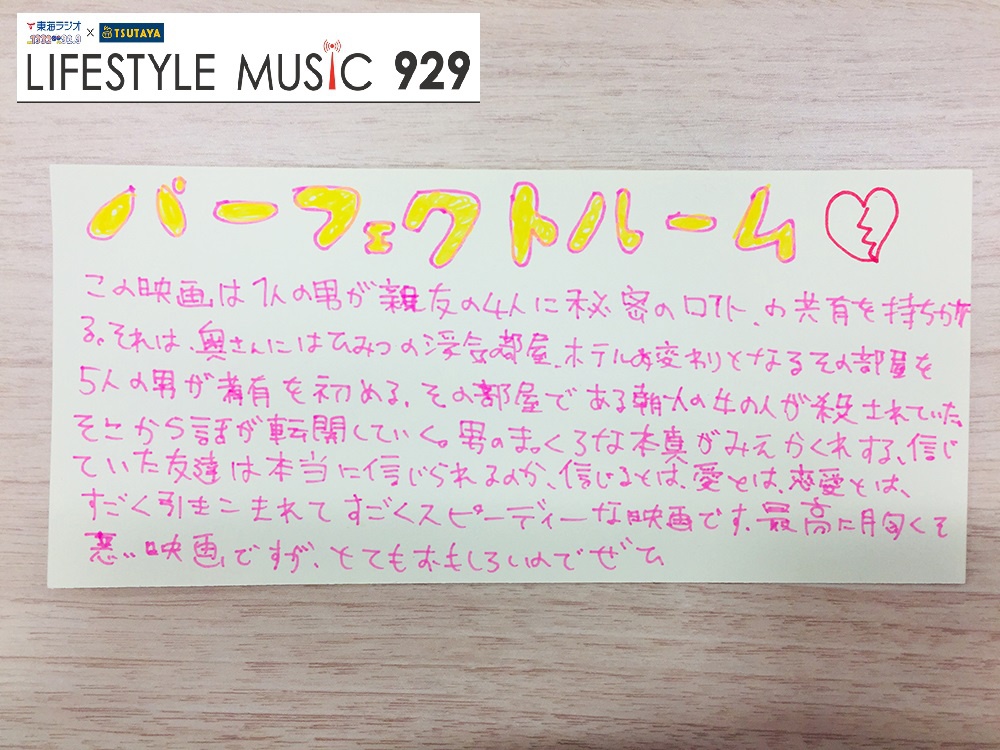 東海ラジオ × TSUTAYA
1332 92.9
LIFESTYLE MUSIC 929
パーフェクトルーム
この映画は1人の男が親友の4人に秘密のロフト、の共有を持ちかけ
る。それは、奥さんにはひみつの浮気の部屋、ホテルお変わりとなるその部屋を
5人の男が共有を初める。その部屋である朝1人の女の人が殺されていた。
そこから話が転開していく。男のまっくろな本真がみえかくれする、信じ
ていた友達は本当に信じられるのか、信じるとは、愛とは、恋愛とは、
すごく引きこまれてすごくスピーディーな映画です。最高に胸くそ
悪い映画ですが、とてもおもしろいのでぜひ